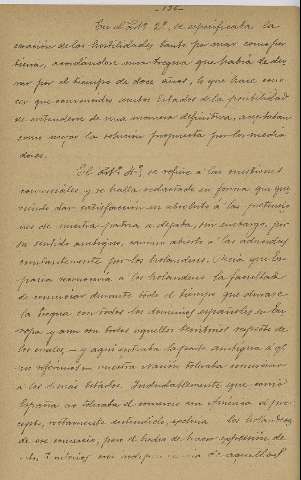 -136-
En el Art.º 2º, se especificaba la
cesación de las hostilidades, tanto por mar como por
tierra, acordándose una tregua que había de du-
rar por el tiempo de doce años, lo que hace cono-
cer que convencidos ambos Estados de la posibilidad
de entenderse de una manera definitiva, aceptaban
como mejor la solución propuesta por los media-
dores.
El Art.º 4º, se refiere a las cuestiones
comerciales y se halla redactado en forma que que-
riendo dar satisfacción en absoluto á las pretensio-
nes de nuestra patria dejaba, sin embargo, por
su sentido ambiguo, camino abierto á las aducidas
constantemente por los holandeses. Decía que Es-
paña reconocía á los holandeses la facultad
de comerciar durante todo el tiempo que durase
la tregua con todos los dominios españoles en Eu-
ropa y aun con todos aquellos territorios respecto de
los cuales, — y aquí entraba la parte ambigua á q.
nos referimos — nuestra nación toleraba comerciar
a los demás Estados. Indudablemente que como
España no toleraba el comercio en América el pre-
cepto, rectamente entendido, excluía los holandeses
de ese comercio, pero el hecho de hacer expresión de